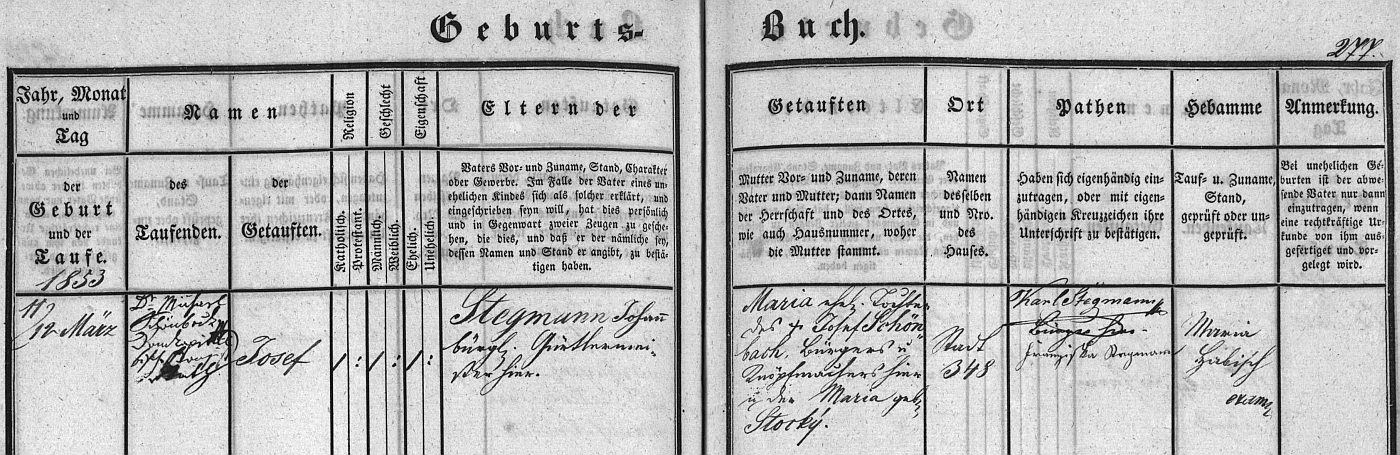 Geburts-
Buch.
277.
Jahr, Monat
und
Tag
Namen
Religion
Geschlecht
Eigenschaft
Eltern der
der
Geburt
und der
Taufe.
1853
des
Taufenden.
der
Getauften.
Katholisch.
Protestant.
Männlich.
Weiblich.
Ehelich.
Unehelich.
Vaters Vor- und Zuname, Stand, Charakter
oder Gewerbe. Im Falle der Vater eines un-
ehelichen Kindes sich als solcher erklärt, und
eingeschrieben seyn will, hat dies persönlich
und in Gegenwart zweier Zeugen zu gesche-
hen, die dies, und daß er der nämliche sey,
dessen Namen und Stand er angibt, zu bestä-
tigen haben.
Getauften
Ort
Pathen
Hebamme
Anmerkung.
Mutter Vor- und Zuname, deren
Vater und Mutter; dann Namen
der Herrschaft und des Ortes,
wie auch Hausnummer, woher
die Mutter stammt.
Namen
desselben
und Nro.
des
Hauses.
Haben sich eigenhändig ein-
zutragen, oder mit eigen-
händigen Kreuzzeichen ihre
Unterschrift zu bestätigen.
Tauf- u. Zuname,
Stand,
geprüft oder un-
geprüft.
Bei unehelichen Ge-
burten ist der abwe-
sende Vater nur dann
einzutragen, wenn
eine rechtkräftige Ur-
kunde von ihm aus-
gefertiget und vor-
gelegt wird.
11/
12 März
Josef
1 : 1 : 1 :
Stegmann Johann
bürgl. Gürtlermei-
ster hier.
Maria ehel. Tochter
des † Josef Schön
bach, Bürgers u
Knöpfmachers hier
u der Maria geb
Stocky.
Stadt
348
Karl Stegmann
Bürger hier.
Franziska Stegmann
Maria
Häbisch
exam